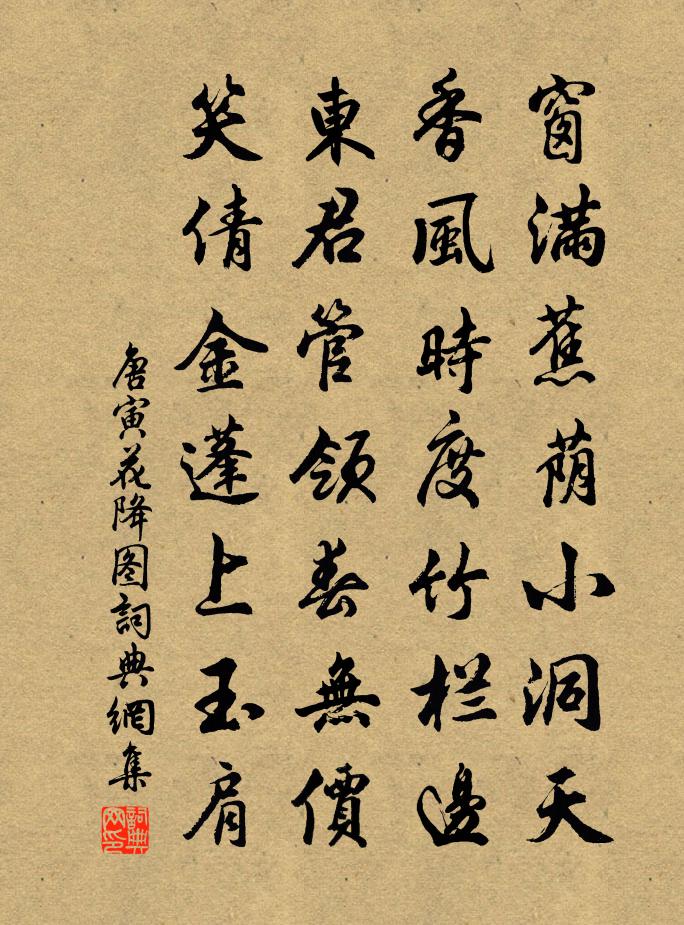 窗滿蕉荫小洞天
香風時度竹栏邊
東君管領春無價
笑倩金蓬上玉肩
唐寅花降图詞典網集
詞典
网印